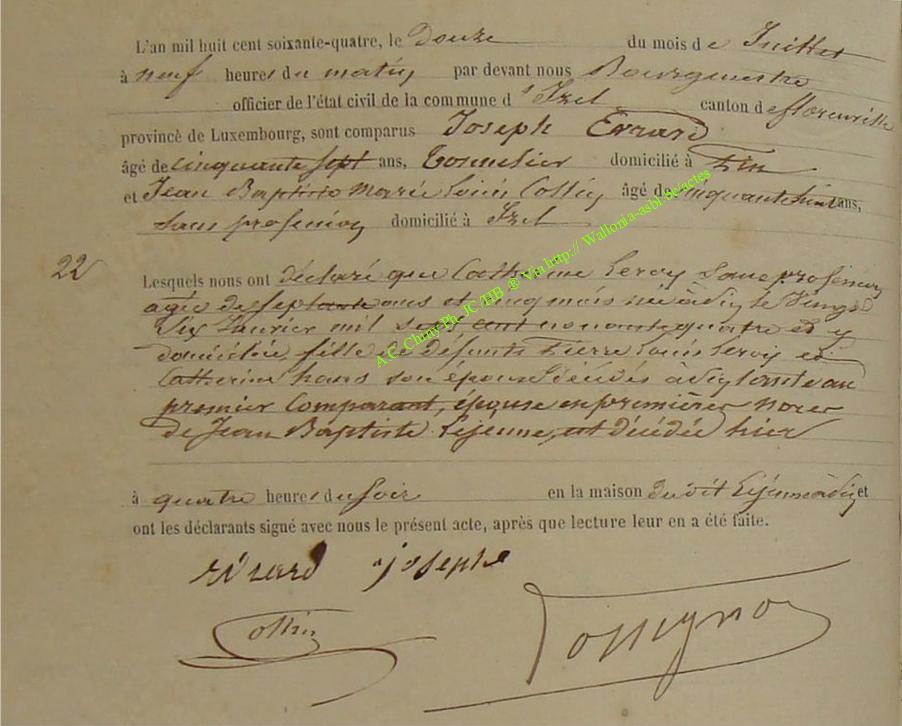 L'an mil huit cent soixante-quatre, le Douze du mois de Juillet
à neuf heures du matin par devant nous Bourgmestre
officier de l'état civil de la commune d'Izel canton de florenville
province de Luxembourg, sont comparus Joseph Errard
âgé de cinquante sept ans, Tonnelier domicilié à Pin
et Jean Baptiste Marie Louis Collin âgé de cinquante huit ans,
sans profession domicilié à Izel
22
Lesquels nous ont déclaré que Catherine Leroy sans profession
agée de septante ans et cinq mois née à le Vingt
Six Janvier mil sept cent nonante quatre et y
domiciliée, fille de défunts Pierre Louis Leroy et
Catherine hans son épouse décédés à tante au
premier Comparant, épouse en premières noces
de Jean Baptiste Lejeune, est décédée hier
à quatre heures du soir en la maison dudit Lejeune à et
ont les déclarants signé avec nous le présent acte, après que lecture leur en a été faite.
érrard joseph
Collin
A.C. Chiny Ph. JC /HB @ Via http:// Wallonia-asbl.be/actes